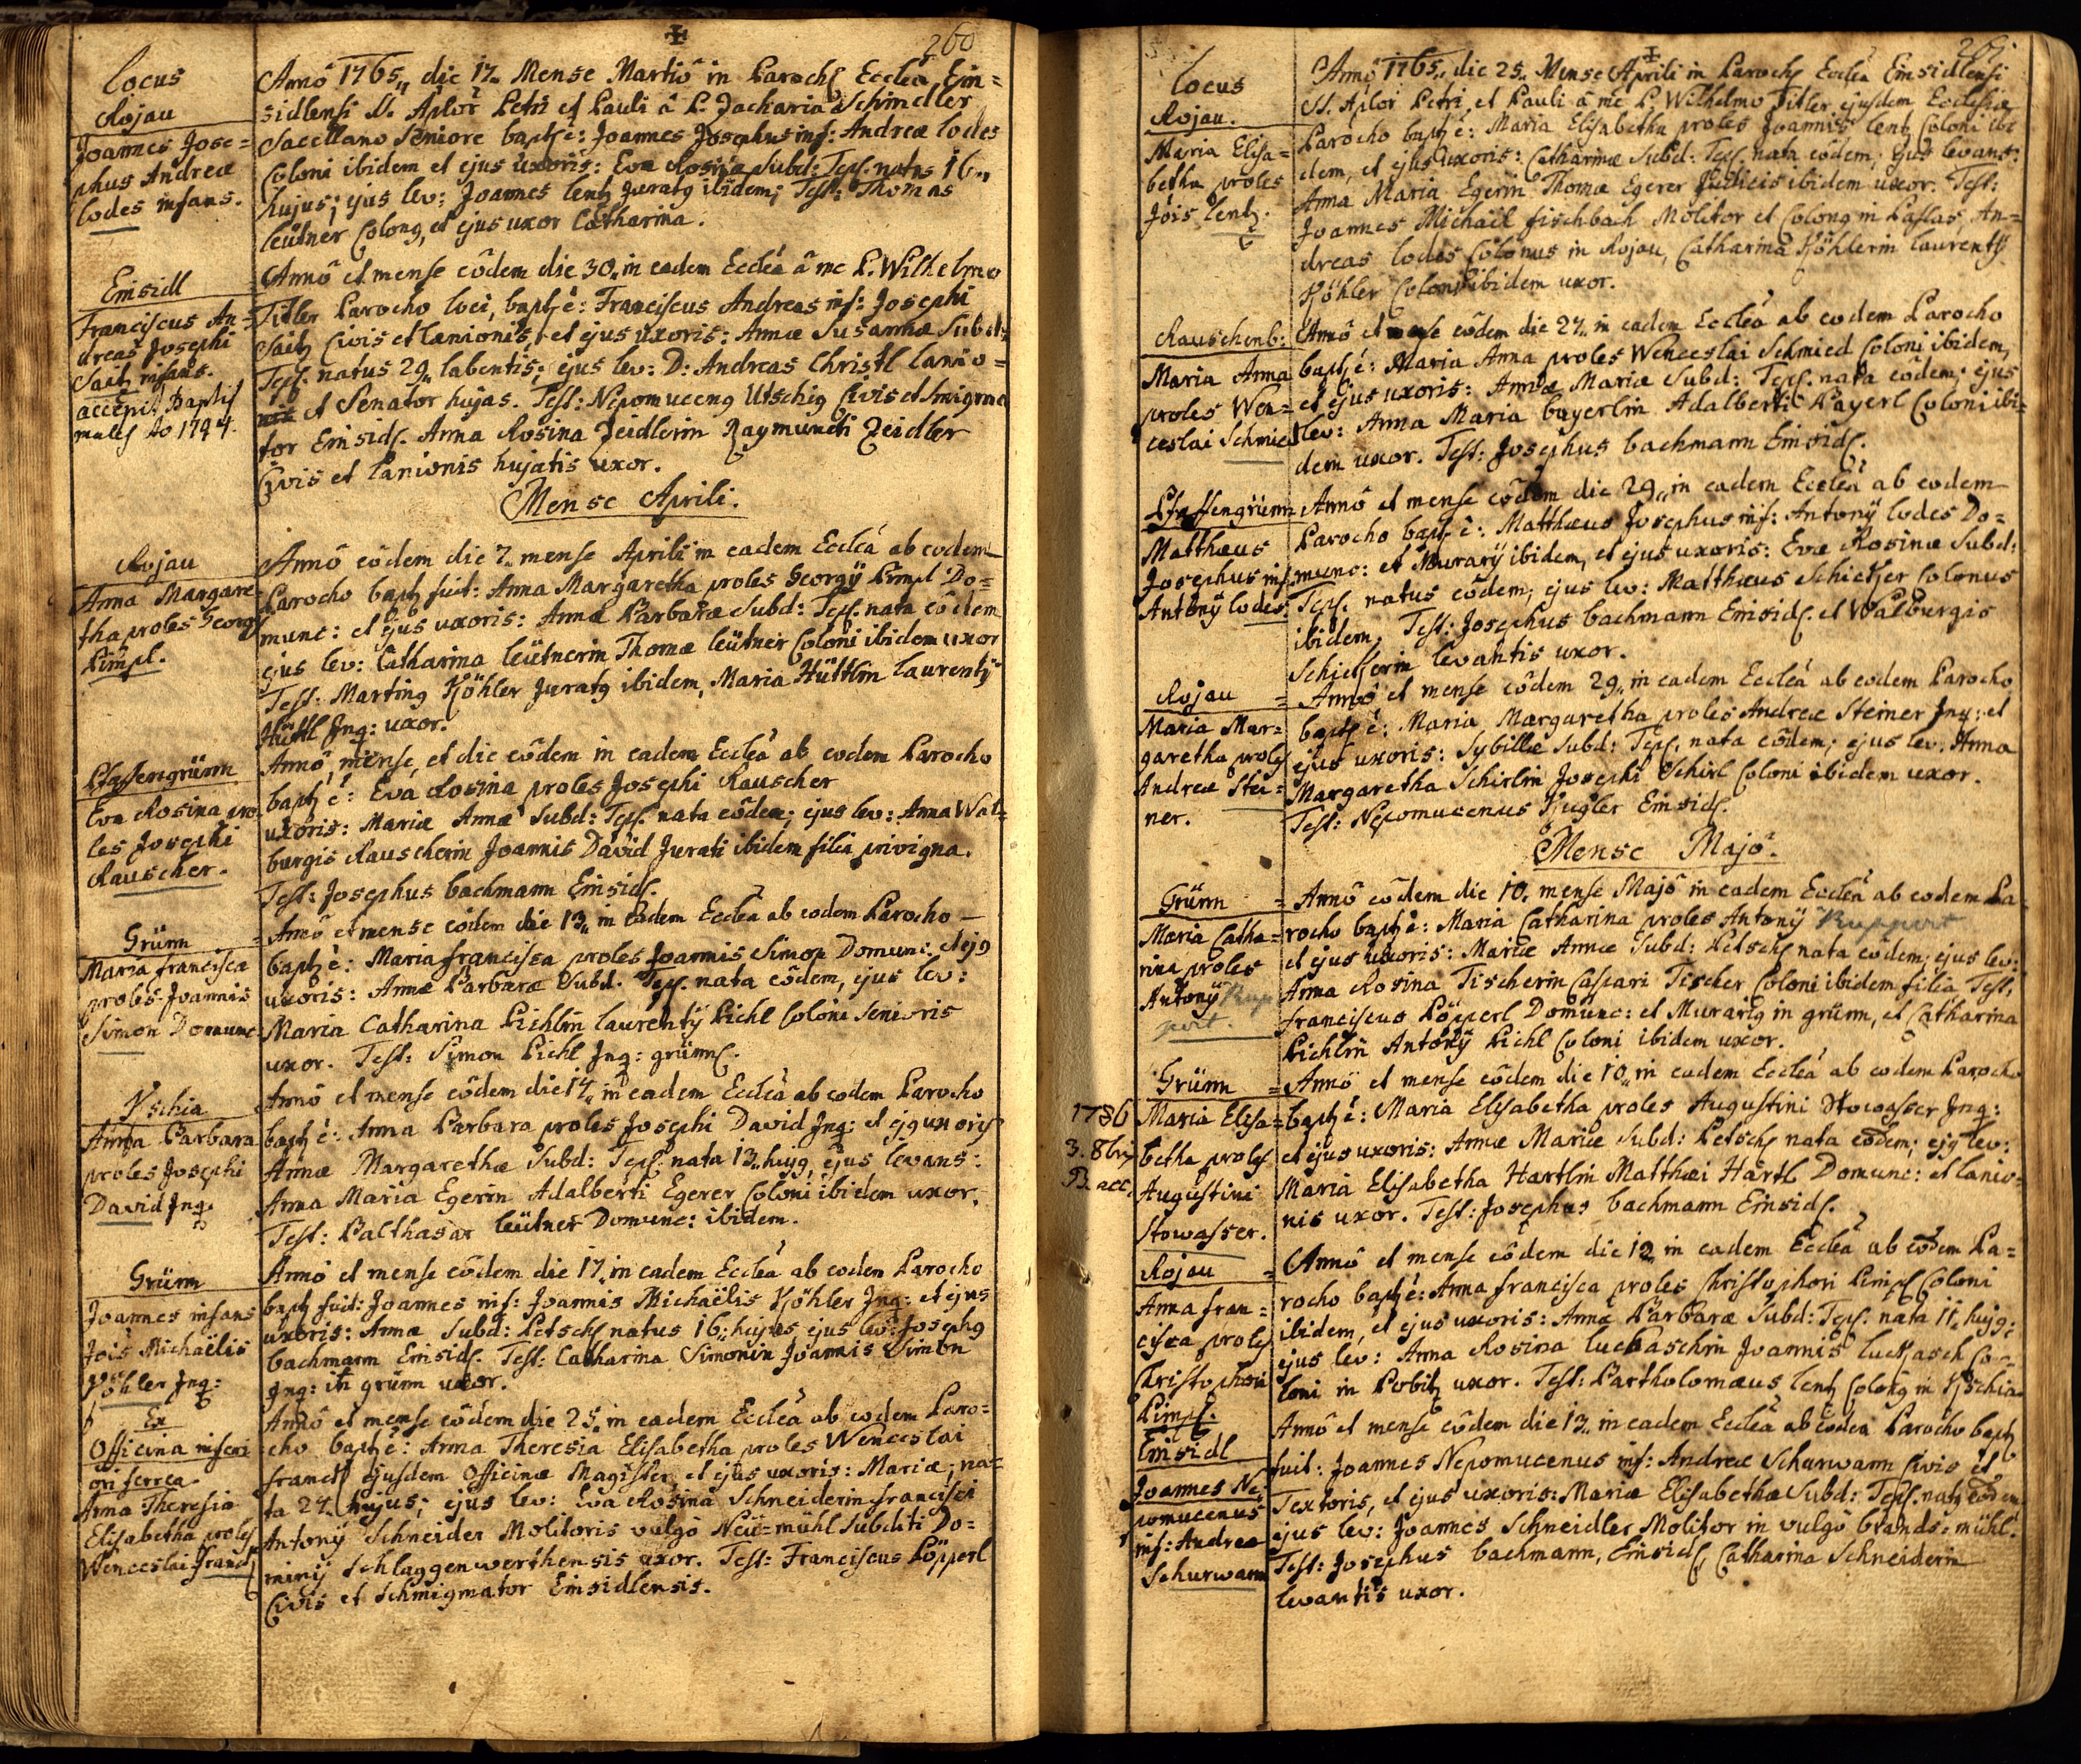 260
Locus
Rojau
Joannes Jose=
phus Andreæ
Lodes infans.
Annô 1765„ die 17„ Mense Martiô in Paroch Eccleâ Ein=
sidlensi SS. Aplor Petri et Pauli â P. Zacharia Schindler
Sacellano Seniore bapt é: Joannes Josephus inf: Andreæ Lodes
Coloni ibidem et ejus uxoris: Evæ Rosinæ Subd: Tepl. natus 16„
hujus; ejus lev: Joannes Lentz Jurat9 ibidem; Test: Thomas
Leütner Colon9, et ejus uxor Catharina.
Einsidl
Franciscus An=
dreas Josephi
Saitz infans.
accepit Baptis
males Ao 1794.
Annô et mense eôdem die 30„ in eadem Eccleâ â me P. Wilhelmo
Titler Parocho loci, bapt é: Franciscus Andreas inf: Josephi
Saitz Civis et Lanionis, et ejus uxoris: Annæ Susannæ Subd:
Tepl. natus 29„ labentis; ejus lev: D: Andreas Christl Lanio=
et Senator hujas. Test: Nepomucen9 Utschig Civis et Smigma
tor Einsidl. Anna Rosina Zeidlerin Raymundi Zeidler
Civis et Lanionis hujatis uxor.
Mense Aprili.
Rojau
Anna Margare=
tha proles Georgÿ
Pimpl.
Annô eôdem die 7„ mense Aprili in eadem Eccleâ ab eodem
Parocho bapt fuit: Anna Margaretha proles Georgÿ Pimpl Do=
munc: et ejus uxoris: Annæ Barbaræ Subd: Tepl. nata eôdem
ejus lev: Catharina Leütnerin Thomæ Leütner Coloni ibidem uxor
Test: Martin9 Köhler Jurat9 ibidem, Maria Hüttlin Laurentÿ
Hüttl Inq: uxor.
Pfaffengrünn
Eva Rosina pro
les Josephi
Rauscher.
Annô mense, et die eôdem in eadem Eccleâ ab eodem Parocho
bapt é: Eva Rosina proles Josephi Rauscher
uxoris: Mariæ Annæ Subd: Tepl. nata eôdem; ejus lev: Anna Wal=
burgis Rauscherin Joannis David Jurati ibidem filia privigna.
Test: Josephus Bachmann Einsidl.
Grünn
Maria Francisca
proles Joannis
Simon Domunc:
Annô et mense eôdem die 13„ in eadem Eccleâ ab eodem Parocho
bapt é: Maria Francisca proles Joannis Simon Domunc: et ej9
uxoris: Annæ Barbaræ Subd. Tepl. nata eôdem, ejus lev:
Maria Catharina Pichlin Laurentÿ Pichl Coloni Senioris
uxor. Test: Simon Pichl Inq: grünnl.
Kschia
Anna Barbara
proles Josephi
David Inq.
Annô et mense eôdem die 14„ in eadem Eccleâ ab eodem Parocho
bapt é: Anna Barbara proles Josephi David Inq: et ej9 uxoris
Annæ Margarethæ Subd: Tepl. nata 13„ huj9, ejus levans:
Anna Maria Egerin Adalberti Egerer Coloni ibidem uxor.
Test: Balthasar Leütner Domunc: ibidem.
Grünn
Joannes infans
Jois Michaëlis
Köhler Inq:
Annô et mense eôdem die 17„ in eadem Eccleâ ab eodem Parocho
bapt fuit: Joannes inf: Joannis Michaëlis Köhler Inq: et ejus
uxoris: Annæ Subd: Petsch natus 16„ hujus ejus lev: Joseph9
Bachmann Einsidl. Test: Catharina Simonin Joannis Simon
Inq: in grünn uxor.
Ex
Officina inferi
ori ferrea.
Anna Theresia
Elisabetha proles
Wenceslai Franck
Annô et mense eôdem die 25„ in eadem Eccleâ ab eodem Paro=
cho bapt é: Anna Theresia Elisabetha proles Wenceslai
Franck ejusdem Officinæ Magister, et ejus uxoris: Mariæ; na=
ta 24„ hujus; ejus lev: Eva Rosina Schneiderin Francisci
Antonÿ Schneider Molitoris vulgò Neü=mühl Subditi Do=
minÿ Schlaggenwerthensis uxor. Test: Franciscus Pöpperl
Civis et Schmigmator Einsidlensis.
261
Locus
Rojau.
Maria Elisa=
betha proles
Jois Lentz.
Annô 1765„ die 25„ Mense Aprili in Paroch Eccleâ Einsidlensi
SS. Aplor Petri, et Pauli â me P. Wilhelmo Titler ejusdem Ecclesiæ
Parocho bapt é: Maria Elisabetha proles Joannis Lentz Coloni ibi
dem, et ejus uxoris: Catharinæ Subd: Tepl. nata eôdem; ejus levans:
Anna Maria Egerin Thomæ Egerer Judicis ibidem uxor. Test:
Joannes Michaël Fischbach Molitor et Colon9 in Paslas, An=
dreas Lodes Colonus in Rojau, Catharina Köhlerin Laurentÿ
Köhler Coloni ibidem uxor.
Rauschenb:
Maria Anna
proles Wen=
ceslai Schmied
Annô et mense eôdem die 27„ in eadem Eccleâ ab eodem Parocho
bapt é: Maria Anna proles Wenceslai Schmied Coloni ibidem,
et ejus uxoris: Annæ Mariæ Subd: Tepl. nata eôdem; ejus
lev: Anna Maria Bayerlin Adalberti Payerl Coloni ibi=
dem uxor. Test: Josephus Bachmann Einsidl.
Pfaffengrünn
Matthæus
Josephus inf:
Antonÿ Lodes
Annô et mense eôdem die 29„ in eadem Eccleâ ab eodem
Parocho bapt é: Matthæus Josephus inf: Antonÿ Lodes Do=
munc: et Murarÿ ibidem, et ejus uxoris: Evæ Rosinæ Subd:
Tepl. natus eôdem, ejus lev: Matthæus Schicker Colonus
ibidem. Test: Josephus Bachmann Einsidl. et Walburgis
Schickerin levantis uxor.
Rojau
Maria Mar=
garetha proles
Andreæ Stei=
ner.
Annô et mense eôdem 29„ in eadem Eccleâ ab eodem Parocho
bapt é: Maria Margaretha proles Andreæ Steiner Inq: et
ejus uxoris: Sybillæ Subd: Tepl. nata eôdem; ejus lev: Anna
Margaretha Schirlin Josephi Schirl Coloni ibidem uxor.
Test: Nepomucenus Kugler Einsidl.
Mense Majô.
Grünn
Maria Catha=
rina proles
Antonÿ Rup
pert.
Annô eôdem die 10„ mense Majô in eadem Eccleâ ab eodem Pa
rocho bapt é: Maria Catharina proles Antonÿ Ruppert
et ejus uxoris: Mariæ Annæ Subd: Petsch nata eôdem; ejus lev:
Anna Rosina Tischerin Caspari Tischer Coloni ibidem filia Test,
Franciscus Pöpperl Domunc: et Murari9 in grünn, et Catharina
Pichlin Antonÿ Pichl Coloni ibidem uxor.
Grünn
1786
3. 8bris
B. acc.
Maria Elisa=
betha proles
Augustini
Stowasser.
Annô et mense eôdem die 10„ in eadem Eccleâ ab eodem Parocho
bapt é: Maria Elisabetha proles Augustini Stowasser Inq:
et ejus uxoris: Annæ Mariæ Subd: Petsch nata eôdem; ej9 lev:
Maria Elisabetha Hartlin Matthæi Härtl Domunc: et Lanio=
nis uxor. Test: Josephus Bachmann Einsidl.
Rojau
Anna Fran=
cisca proles
Christophori
Pimpl.
Annô et mense eôdem die 12„ in eadem Eccleâ ab eôdem Pa=
rocho bapt é: Anna Francisca proles Christophori Pimpl Coloni
ibidem, et ejus uxoris: Annæ Barbaræ Subd: Tepl. nata 11„ huj9:
ejus lev: Anna Rosina Luckaschin Joannis Luckasch Co=
loni in Pobitz uxor. Test: Bartholomæus Lentz Colon9 in Kschia.
Einsidl
Joannes Ne=
pomucenus
inf: Andreæ
Schurwann
Annô et mense eôdem die 13„ in eadem Eccleâ ab eodem Parocho bapt
fuit: Joannes Nepomucenus inf: Andreæ Schurwann Civis et
Textoris, et ejus uxoris: Mariæ Elisabethæ Subd: Tepl. nat9 eôdem
ejus lev: Joannes Schneidler Molitor in vulgò Brands=mühl.
Test: Josephus Bachmann, Einsidl, Catharina Schneiderin
levantis uxor.